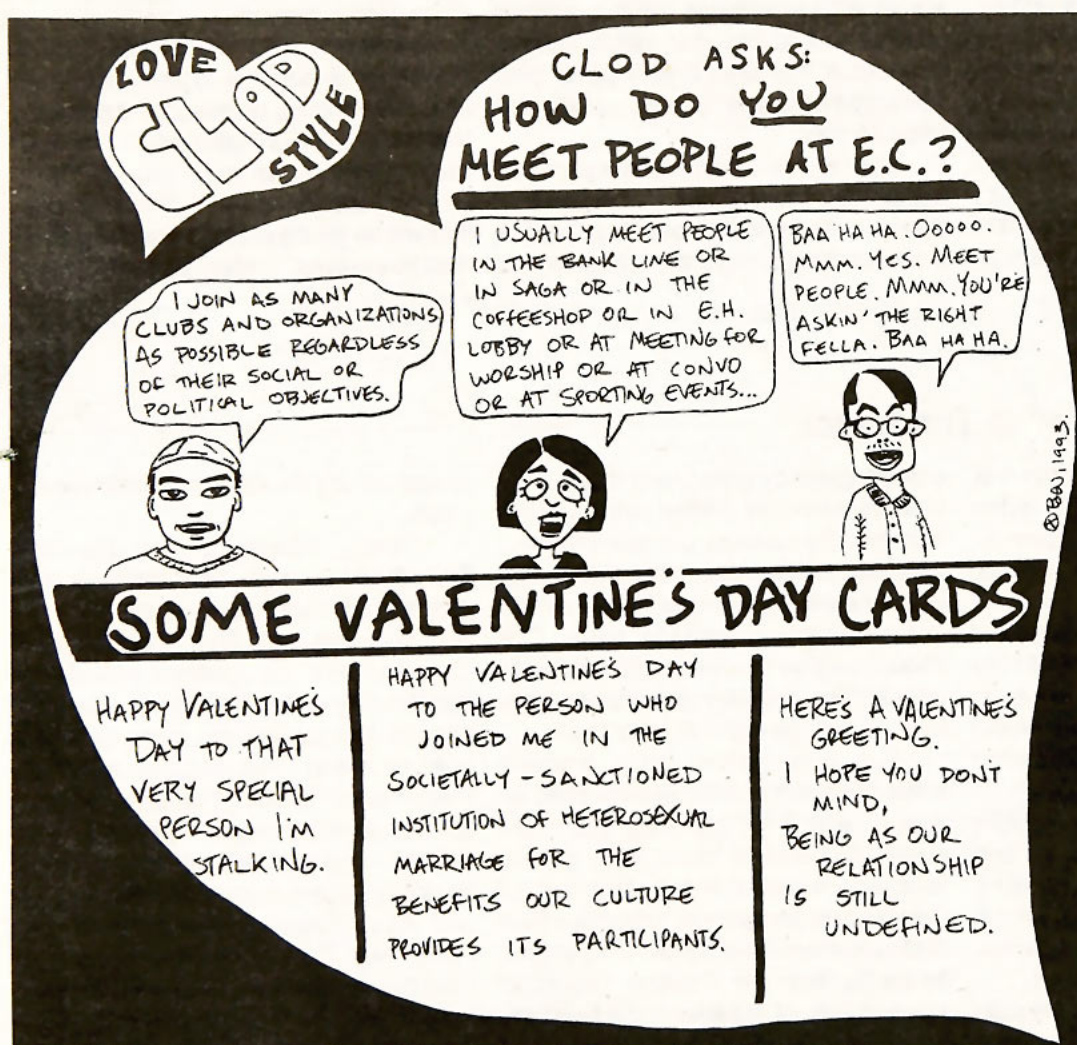 LOVE
CLOD
STYLE
CLOD ASKS:
HOW DO YOU
MEET PEOPLE AT E.C.?
I JOIN AS MANY
CLUBS AND ORGANIZATIONS
AS POSSIBLE REGARDLESS
OF THEIR SOCIAL OR
POLITICAL OBJECTIVES.
I USUALLY MEET PEOPLE
IN THE BANK LINE OR
IN SAGA OR IN THE
COFFEESHOP OR IN E.H.
LOBBY OR AT MEETING FOR
WORSHIP OR AT CONVO
OR AT SPORTING EVENTS...
BAA HA HA. OOOOO.
MMM. YES. MEET
PEOPLE. MMM. YOU'RE
ASKIN' THE RIGHT
FELLA. BAA HA HA.
1993.
SOME VALENTINE'S DAY CARDS
HAPPY VALENTINE'S
DAY TO THAT
VERY SPECIAL
PERSON I'M
STALKING.
HAPPY VALENTINE'S DAY
TO THE PERSON WHO
JOINED ME IN THE
SOCIETALLY-SANCTIONED
INSTITUTION OF HETEROSEXUAL
MARRIAGE FOR THE
BENEFITS OUR CULTURE
PROVIDES ITS PARTICIPANTS.
HERE'S A VALENTINE'S
GREETING.
I HOPE YOU DON'T
MIND,
BEING AS OUR
RELATIONSHIP
IS STILL
UNDEFINED.